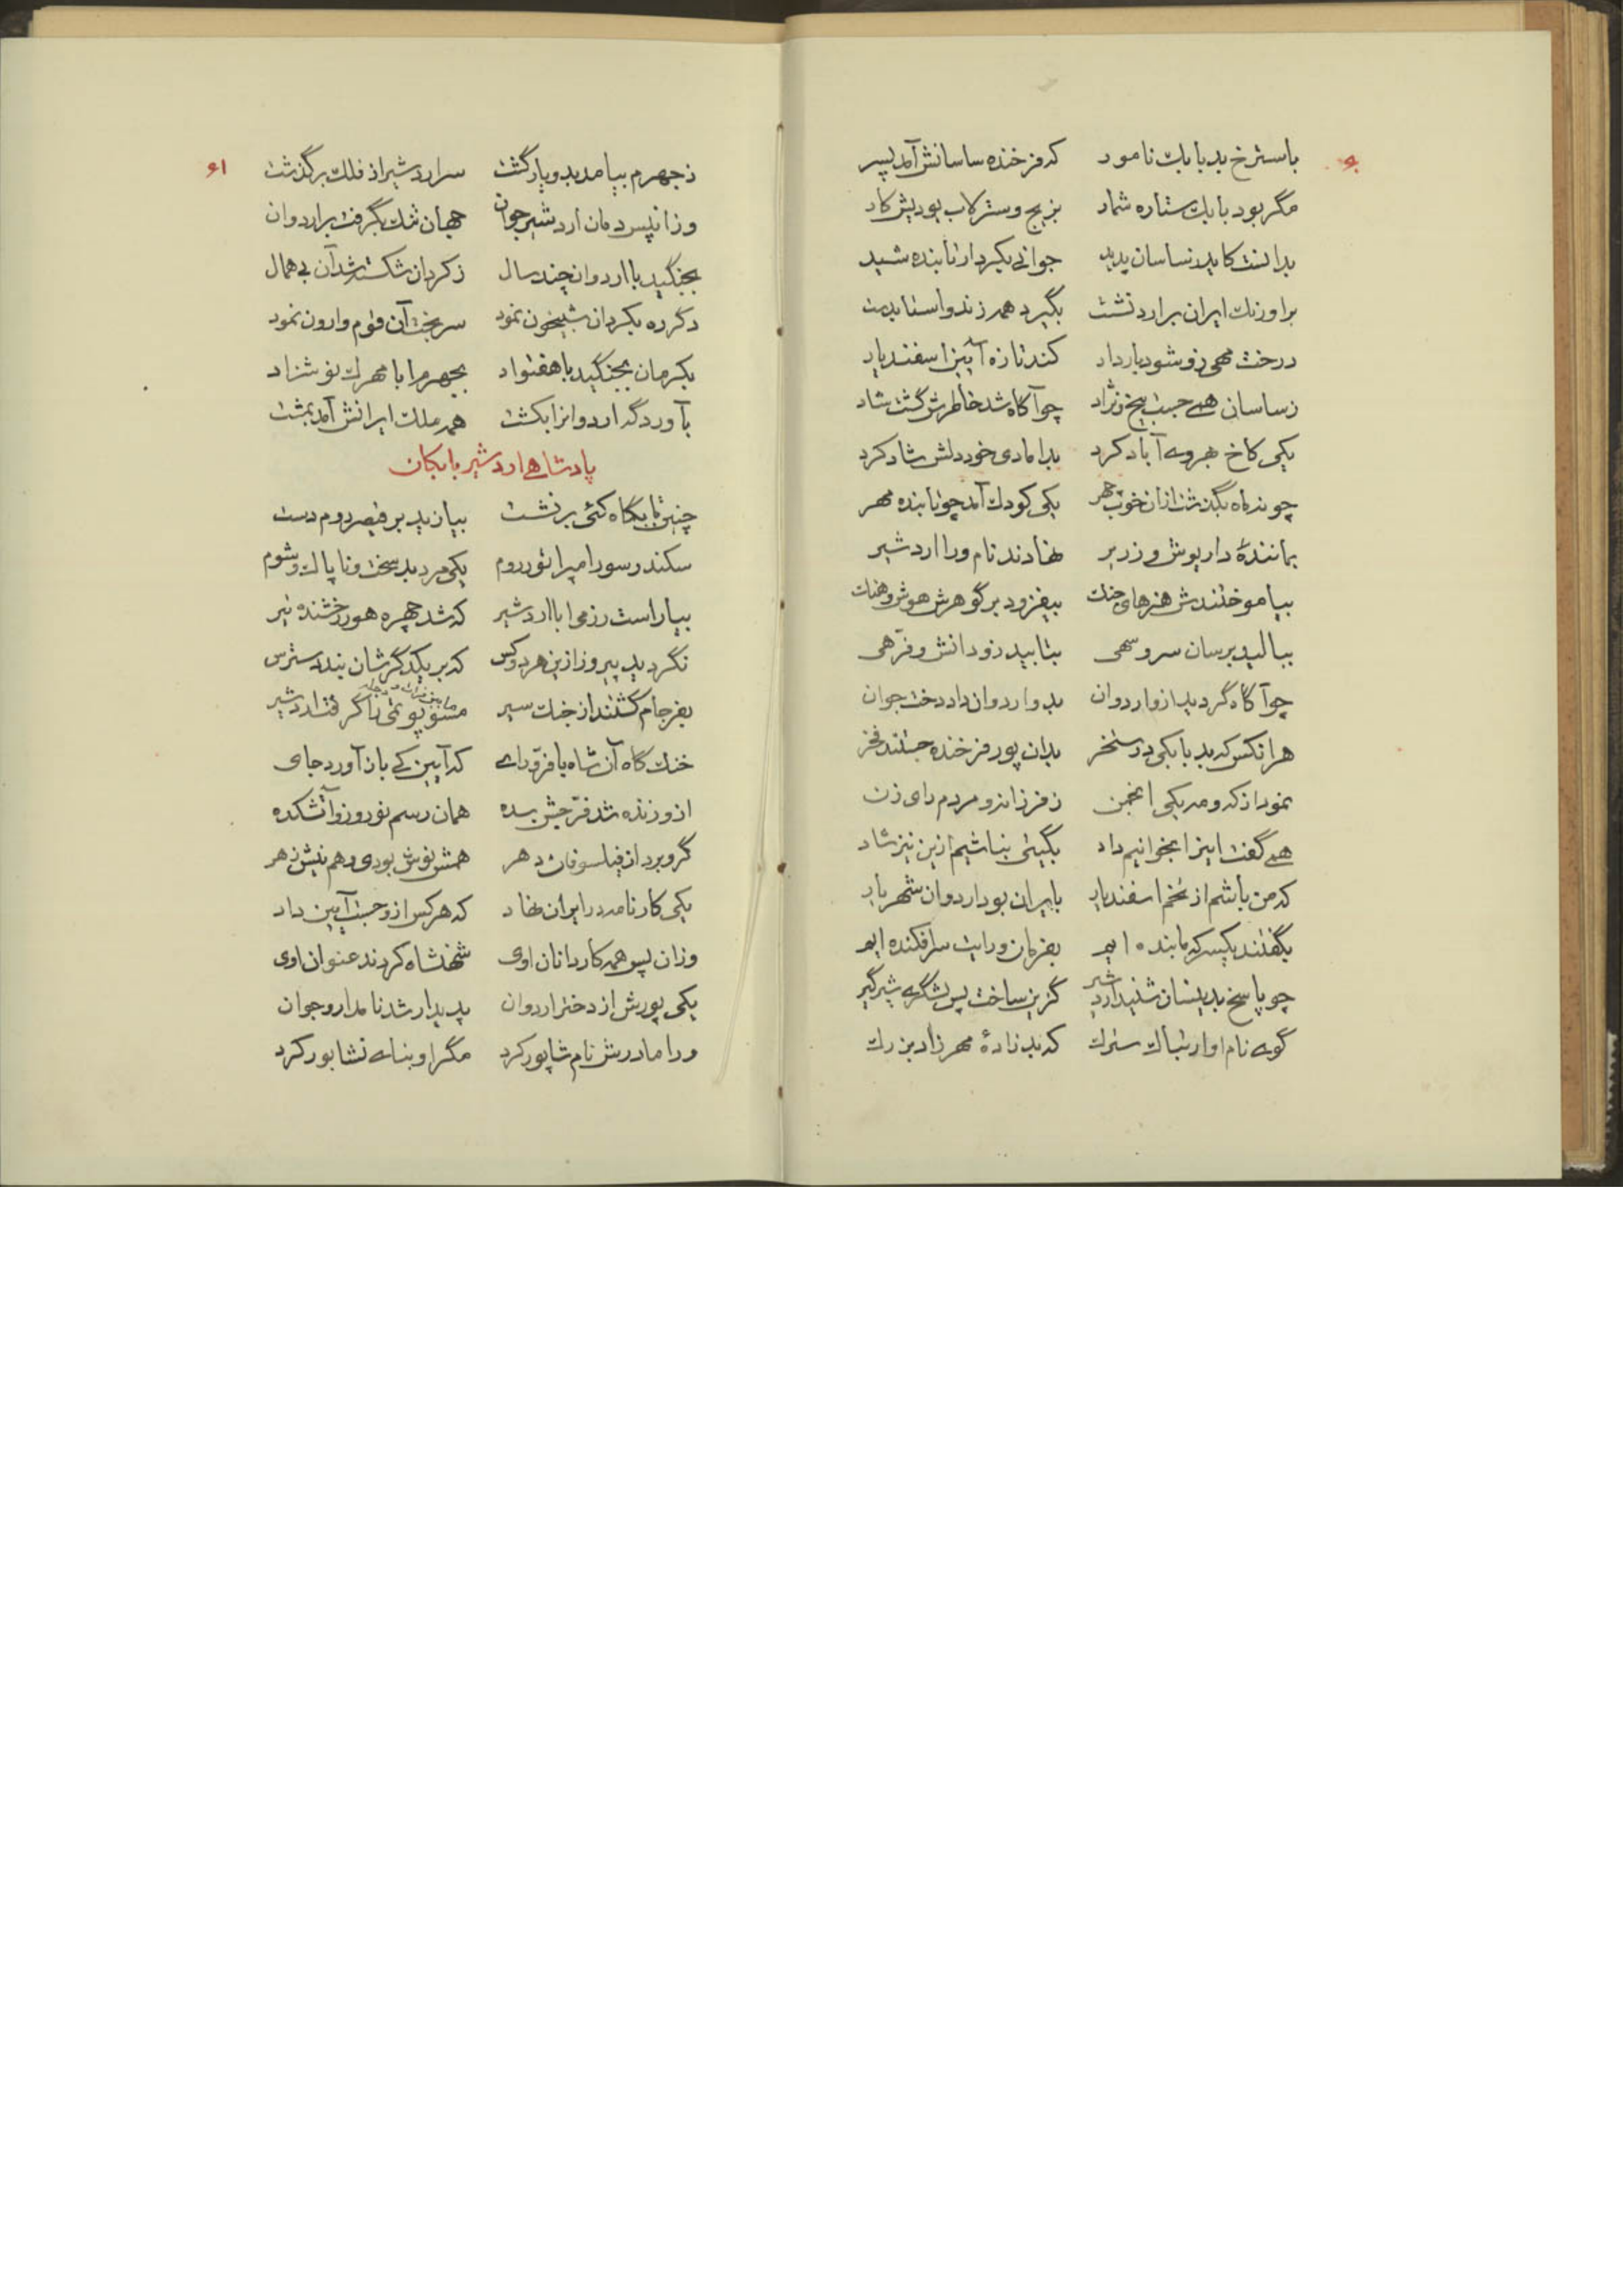 باسترخ بد بابك نامور که فرخنده ساسانش آمد پسر
مگر بود بابك ستاره شمار بزیج و سترلاب بودیش کار
بدانست کاید ز ساسان پدید جوانی بکردار تابنده شید
بر اورنك ایران برارد نشست بگیرد همه زند و استا بدست
درخت مهی زو شود باردار کند تازه آیین اسفندیار
ز ساسان همی جست بیخ و نژاد چو آگاه شد خاطرش گشت شاد
یکی کاخ بهر وی آباد کرد بدامادی خود دلش شاد کرد
چو نه ماه بگذشت ازان خوب چهر یکی کودك آمد چو تابنده مهر
بمانندهٔ داریوش و زریر نهادند نام ورا اردشیر
بیاموختندش هنرهای جنك بیفزود بر گوهرش هوش و هنك
ببالید برسان سرو سهی بتابید زو دانش و فرّهی
چو آگاه گردید ازو اردوان بدو اردوان داد دخت جوان
هر انکس که بد بابکی در سطخر بدان پور فرخنده جستند فخر
نمود از که و مه یکی انجمن ز فرزانه و مردم رای زن
همی گفت ایزا بخوانیم داد بگیتی نباشیم ازین نیز شاد
که من باشم از تخم اسفندیار بایران بود اردوان شهریار
بگفتند یکسر که ما بنده ایم بفرمان و رایت سرافکنده ایم
چو پاسخ بدینسان شنید اردشیر گزین ساخت پس لشگری شیرگیر
گوی نام او ارتباك سترك که بد زادهٔ مهرزاد بزرك
ز جهرم بیامد بدو یار گشت سر اردشیر از فلك برگذشت ۶۱
وزانپس دمان اردشیر جوان جهان تنك بگرفت بر اردوان
بجنگید با اردوان چند سال ز کردان شکسته شد آن بی همال
دگر ره بکردان شبیخون نمود سر بخت آن قوم وارون نمود
بکرمان بجنگید با هفتواد بجهرم ابا مهرك نوشزاد
بآوردگه اردوانرا بکشت همه ملك ایرانش آمد بمشت
پادشاهی اردشیر بابکان
چنین تا بگاه کئی برنشست بیازید بر قیصر روم دست
سکندر سور امپراتور روم یکی مرد بد سخت و ناپاك و شوم
بیاراست رزمی ابا اردشیر که شد چهره هور رخشنده تیر
نگردید پیروز ازین هر دو کس که بر یکدگرشان نبد دسترس
بفرجام گشتند از جنك سیر مسوپوتمی را گرفت اردشیر
خنك گاه آن شاه با فرّ و رای که آیین کی باز آورد جای
ازو زنده شد فرّ جشن سده همان رسم نوروز و آتشکده
گرو برد از فیلسوفان دهر همش نوش بودی و هم نیش زهر
یکی کارنامه در ایران نهاد که هر کس ازو جست آیین داد
وزان پس همه کاردانان اوی شهنشاه کردند عنوان اوی
یکی پورش از دختر اردوان پدیدار شد نامدار و جوان
ورا مادرش نام شاپور کرد مگر او بنای نشابور کرد